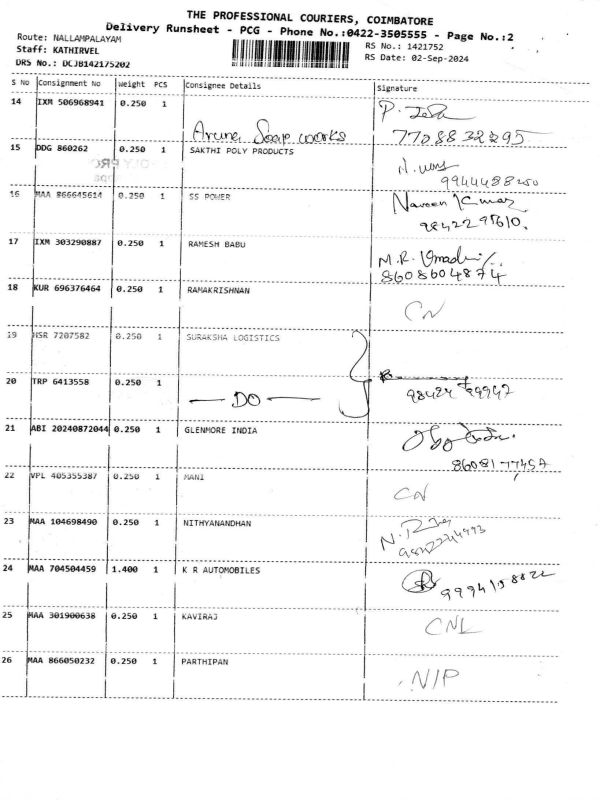 THE PROFESSIONAL COURIERS, COIMBATORE
Delivery Runsheet - PCG - Phone No.:0422-3505555 - Page No.:2
Route: NALLAMPALAYAM RS No.: 1421752
Staff: KATHIRVEL RS Date: 02-Sep-2024
DRS No.: DCJB142175202
S No Consignment No Weight PCS Consignee Details Signature
14 IXM 506968941 0.250 1
Aruna Soap works 7708832295
15 DDG 860262 0.250 1 SAKTHI POLY PRODUCTS
9944488250
16 MAA 866645614 0.250 1 SS POWER Naveen Kumar
9842295610.
17 IXM 303290887 0.250 1 RAMESH BABU M.R. Umadevi
8608604874
18 KUR 696376464 0.250 1 RAMAKRISHNAN CN
19 HSR 7207582 0.250 1 SURAKSHA LOGISTICS
20 TRP 6413558 0.250 1
DO 98424 29947
21 ABI 20240872044 0.250 1 GLENMORE INDIA
8608177457
22 VPL 405355387 0.250 1 MANI CN
23 MAA 104698490 0.250 1 NITHYANANDHAN
24 MAA 704504459 1.400 1 K R AUTOMOBILES
25 MAA 301900638 0.250 1 KAVIRAJ CNL
26 MAA 866050232 0.250 1 PARTHIPAN N/P